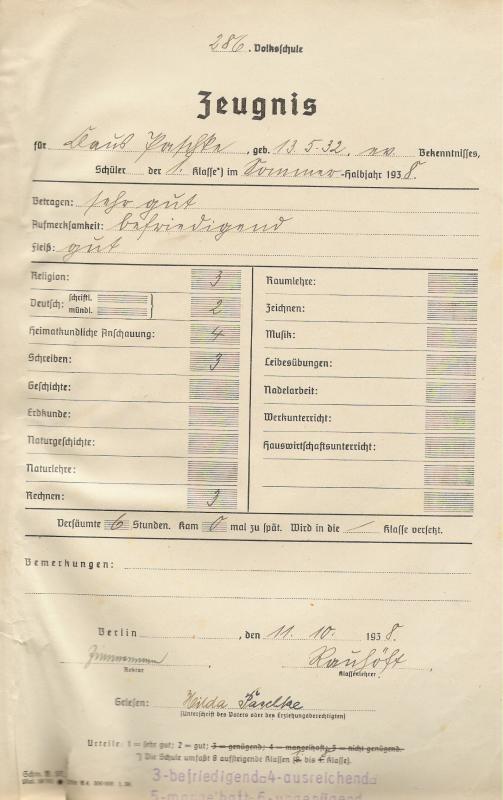 286. Volksschule
Zeugnis
für Claus Paschke, geb. 13.5.32. ev. Bekenntnisses,
Schüler der 1. Klasse*) im Sommer-Halbjahr 1938.
Betragen: sehr gut
Aufmerksamkeit: befriedigend
Fleiß: gut
Religion: 3
Deutsch: schriftl. mündl. 2
Heimatkundliche Anschauung: 4
Schreiben: 3
Geschichte:
Erdkunde:
Naturgeschichte:
Naturlehre:
Rechnen: 3
Raumlehre:
Zeichnen:
Musik:
Leibesübungen:
Nadelarbeit:
Werkunterricht:
Hauswirtschaftsunterricht:
Versäumte 6 Stunden. Kam 0 mal zu spät. Wird in die / Klasse versetzt.
Bemerkungen:
Berlin , den 11. 10. 1938.
Zimmermann Rauhöft
Rektor Klassenlehrer
Gelesen: Hilda Paschke
(Unterschrift des Vaters oder des Erziehungsberechtigten)
Urteile: 1 = sehr gut; 2 = gut; 3 = genügend; 4 = mangelhaft; 5 = nicht genügend.
*) Die Schule umfaßt 8 aufsteigende Klassen
3-befriedigend 4-ausreichend
5-mangelhaft 6-ungenügend